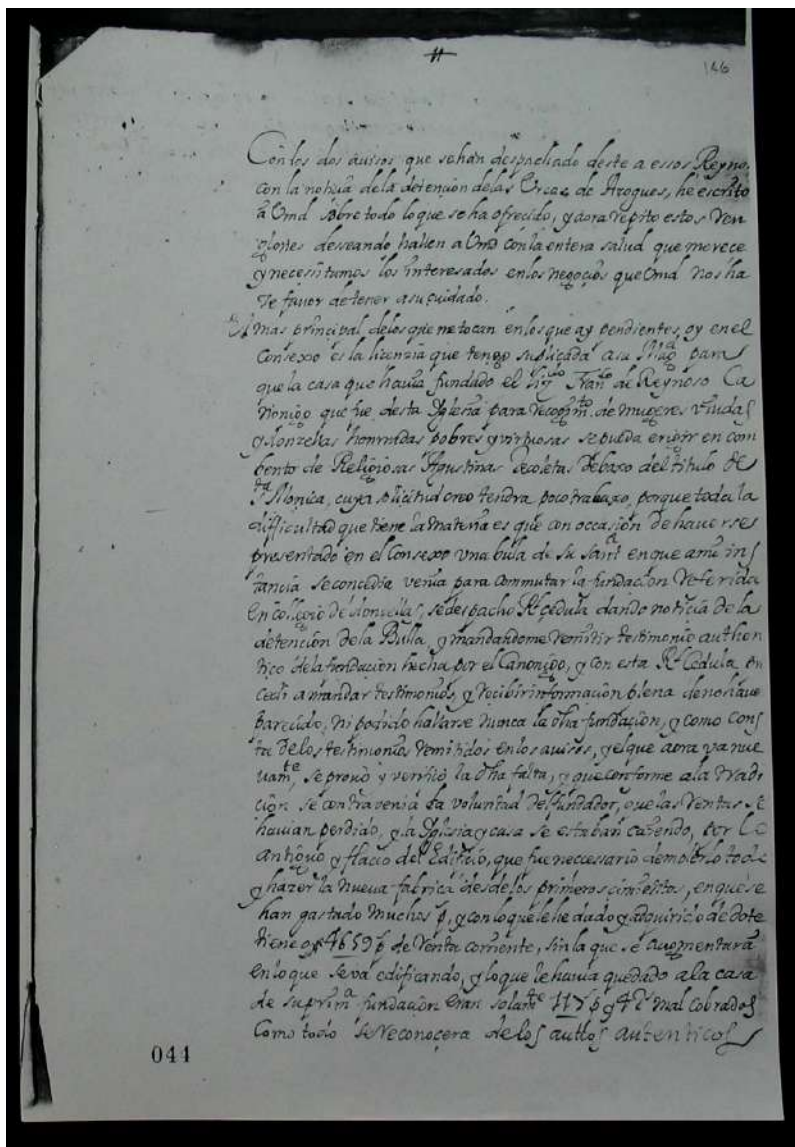 146
Con los dos auisos que se han despachado deste a essos Reyno.
con la noticia de la detencion de las Vrcas de Azogues, he escrito
a Vmd sobre todo lo que se ha ofrecido, y aora repito estos Ren
glones desseando hallen a Vmd con la entera salud que merece
y necessitamos los interesados en los negocios que Vmd nos ha
Ze fauor de tener a su cuidado.
El mas principal de los que me tocan en los que ay pendientes, oy en el
Consexo es la licenzia que tengo suplicada a su Magd para
que la casa que hauia fundado el Franco de Reynoso Ca
nonigo que fue desta Iglesia para recogimto de mugeres viudas
y donzellas honrradas pobres y virtuosas se pueda erigir en com
bento de Religiosas Agustinas Recoletas debaxo del titulo de
Sta Monica, cuya solicitud creo tendra poco trabaxo, porque toda la
difficultad que tiene la materia es que con occasion de hauerse
presentado en el Consexo vna bula de su Santd en que a mi ins
tancia se concedia venia para commutar la fundacion referida
en collegio de donzellas, se despacho Rl cedula dando noticia de la
detencion de la Bulla, y mandandome remitir testimonio authen
tico de la fundacion hecha por el Canonigo, y con esta Rl Cedula
a mandar testimonios, y recibir informacion plena de no hauer
parecido, ni podido hallarse nunca la dha fundacion, y como cons
ta de los testimonios remitidos en los auisos, y el que aora va nue
uamte, se prouo y verifico la dha falta, y que conforme a la tradi
cion se contrauenia la voluntad del fundador, que las Rentas se
hauian perdido, y la Iglesia y casa se estaban cayendo, por lo
antiguo y flaco del Edificio, que fue necessario demolerlo todo
y hazer la nueua fabrica desde los primeros cimientos, en que se
han gastado muchos p, y con lo que le he dado y adquirido de dote
tiene oy 4659 p de Renta corriente, sin la que se augmentara
en lo que se va edificando, y lo que le hauia quedado a la casa
de su primra fundacion eran solamte 117 p y 4 rs mal cobrados
como todo se reconocera de los auttos autenticos
044